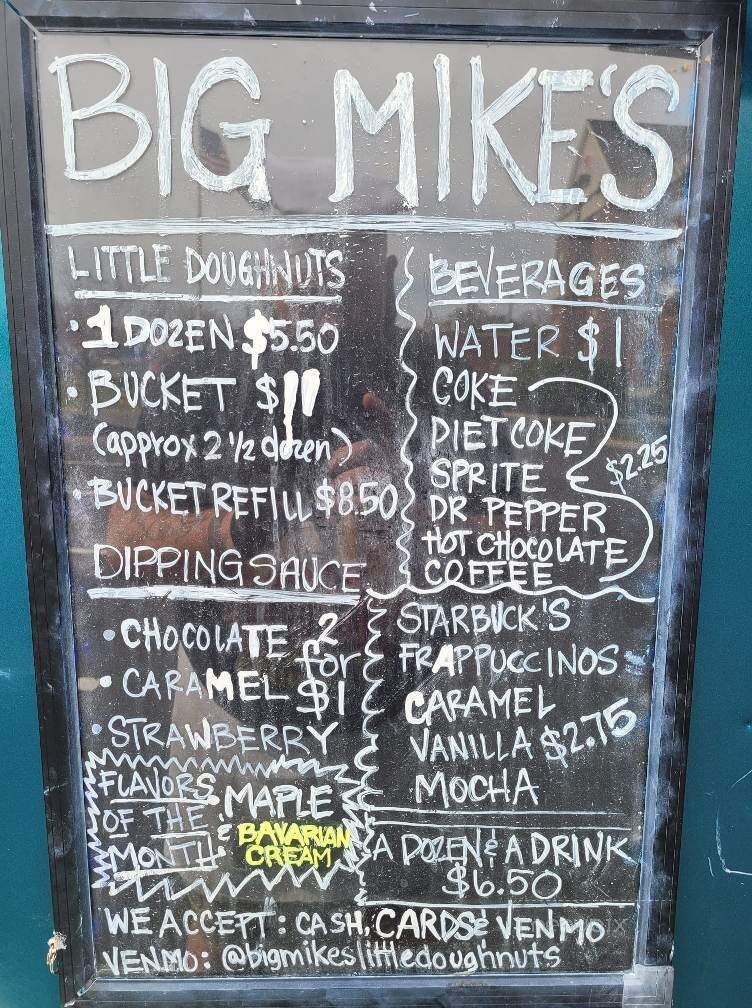 BIG MIKE'S
LITTLE DOUGHNUTS
• 1 DOZEN $5.50
• BUCKET $11
(approx 2 1/2 dozen)
• BUCKET REFILL $8.50
DIPPING SAUCE
• CHOCOLATE
• CARAMEL
• STRAWBERRY
2
for
$1
FLAVORS
OF THE
MONTH
MAPLE
& BAVARIAN
CREAM
BEVERAGES
WATER $1
COKE
DIET COKE
SPRITE
DR PEPPER
HOT CHOCOLATE
COFFEE
$2.25
STARBUCK'S
FRAPPUCCINOS
CARAMEL
VANILLA $2.75
MOCHA
A DOZEN & A DRINK
$6.50
WE ACCEPT: CASH, CARDS & VENMO
VENMO: @bigmikeslittledoughnuts